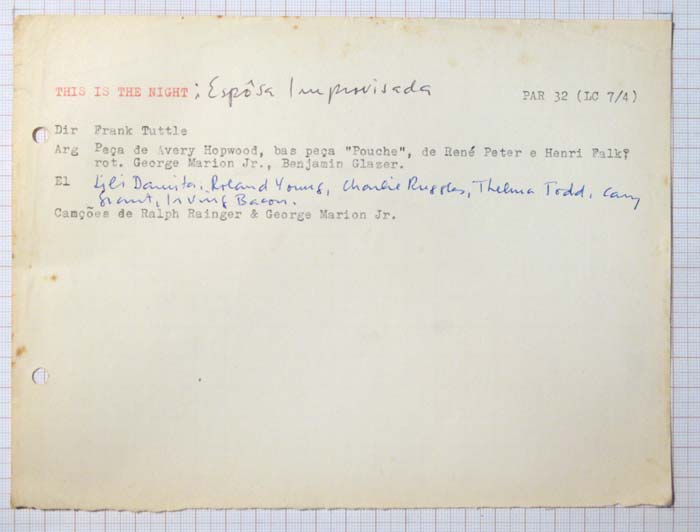 THIS IS THE NIGHT : Espôsa Improvisada PAR 32 (LC 7/4)
Dir Frank Tuttle
Arg Peça de Avery Hopwood, bas peça "Pouche", de René Peter e Henri Falk;
rot. George Marion Jr., Benjamin Glazer.
El Lili Damita, Roland Young, Charlie Ruggles, Thelma Todd, Cary
Grant, Irving Bacon.
Canções de Ralph Rainger & George Marion Jr.